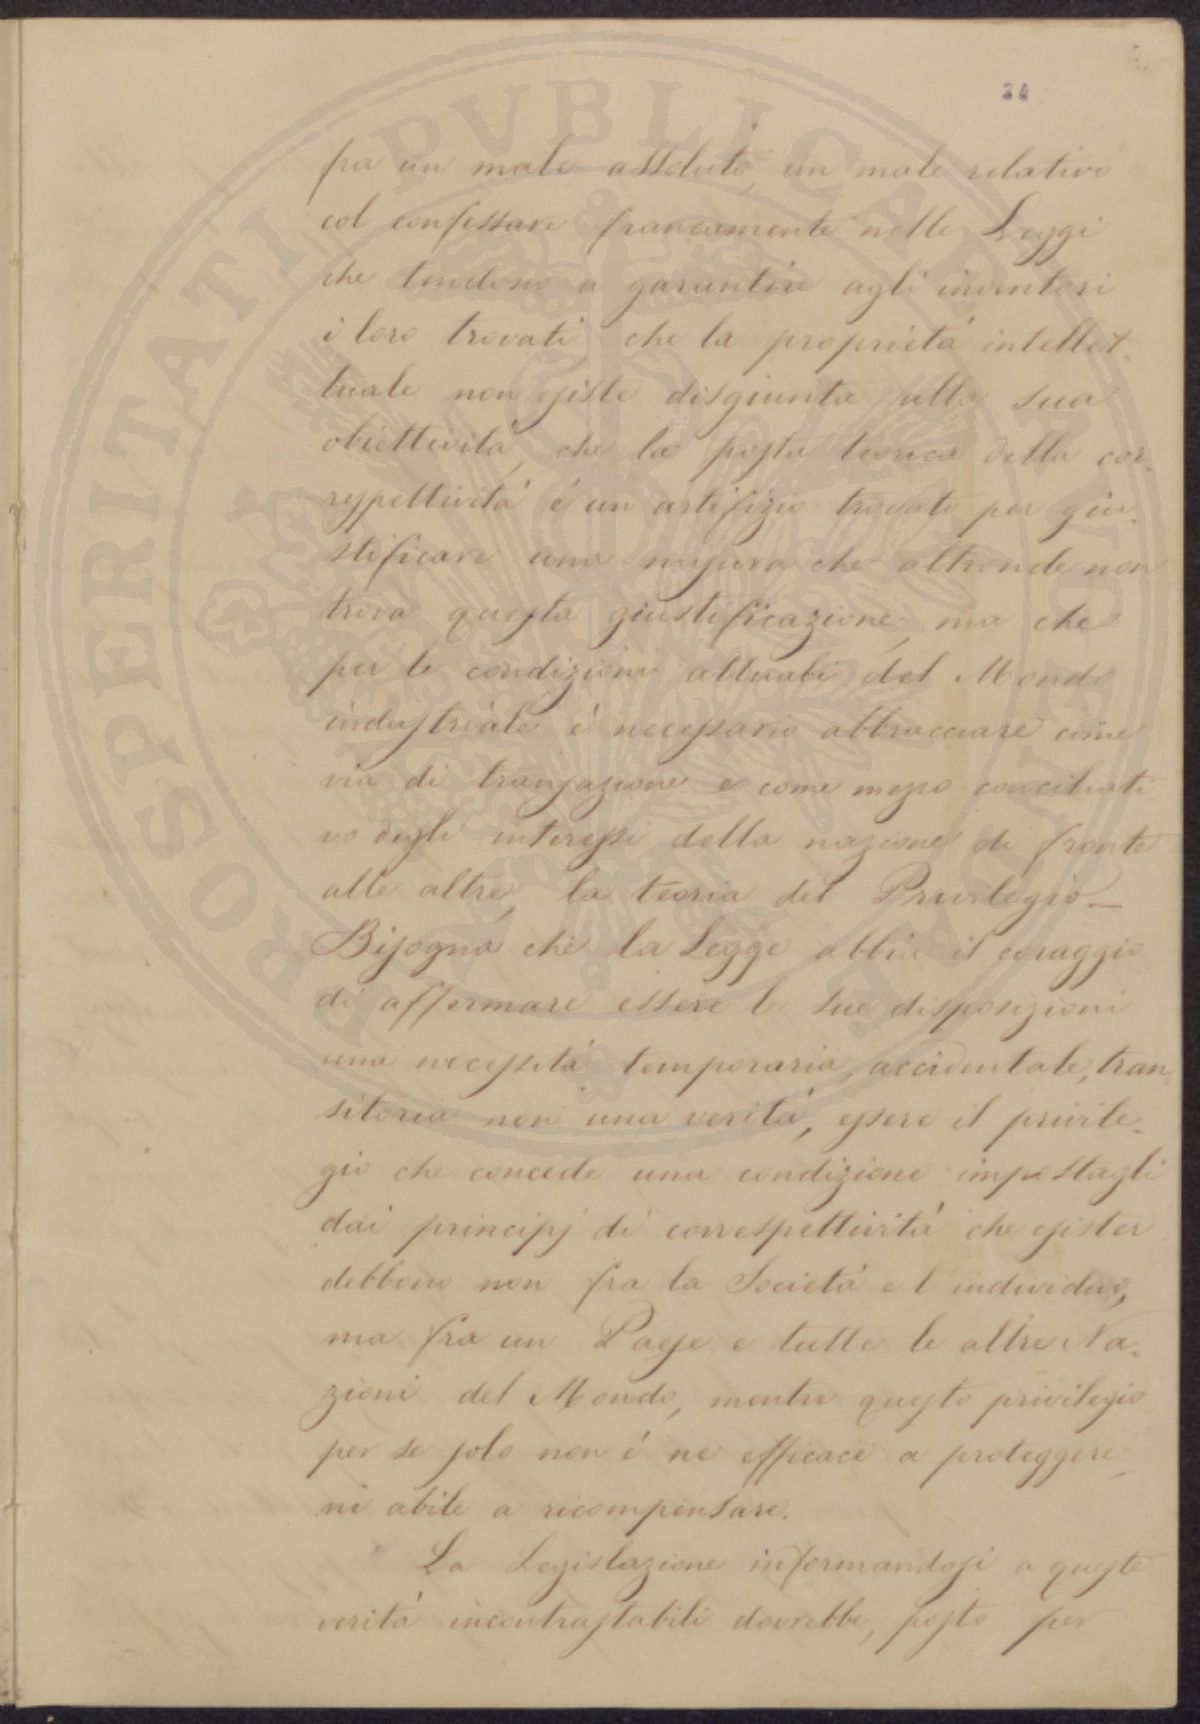 34
fra un male assoluto, un male relativo
col confessare francamente nelle Leggi
che tendono a garantire agli inventori
i loro trovati che la proprietá intellet-
tuale non esiste disgiunta alla sua
obiettivitá, che la posta teorica della cor-
respettivitá é un artifizio trovato per giu-
stificare una misura che altronde non
trova questa giustificazione, ma che
per le condizioni attuali del Mondo
industriale é necessario abbracciare come
via di transazione e come mezzo conciliati-
vo degli interessi della nazione di fronte
alle altre, la teoria del Privilegio —
Bisogna che la Legge abbia il coraggio
di affermare essere le sue disposizioni
una necessitá temporaria, accidentale, tran-
sitoria non una veritá, essere il privile-
gio che concede una condizione impostagli
dai principj di correspettivitá che esister
debbono non fra la Societá e l individuo,
ma fra un Paese e tutte le altre Na-
zioni del Mondo, mentre questo privilegio
per se solo non é ne efficace a proteggere,
ne abile a ricompensare.
La Legislazione informandosi a queste
veritá incontrastabili dovrebbe, posto per
PROSPERITATI PVBLICAE